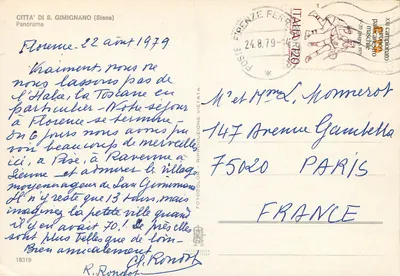 CITTA' DI S. GIMIGNANO (Siena)
Panorama
Florence 22 août 1979
Vraiment nous ne
nous lassons pas de
l'Italie, la Toscane en
particulier - Notre séjour
à Florence se termine -
En 6 jours nous avons pu
voir beaucoup de merveilles
ici, à Pise, à Ravenne à
Sienne et admirer le village
moyenageux de San Gimignano
Il n'y reste que 13 tours, mais
imaginez la petite ville quand
il y en avait 70! De près elles
sont plus belles que de loin -
Bien amicalement
R. Rondot
Ch. Rondot
18319
POSTE FIRENZE FERR
24.8.79
ITALIA
M et Mme L. Monnerot
147 Avenue Gambetta
75020 PARIS
FRANCE